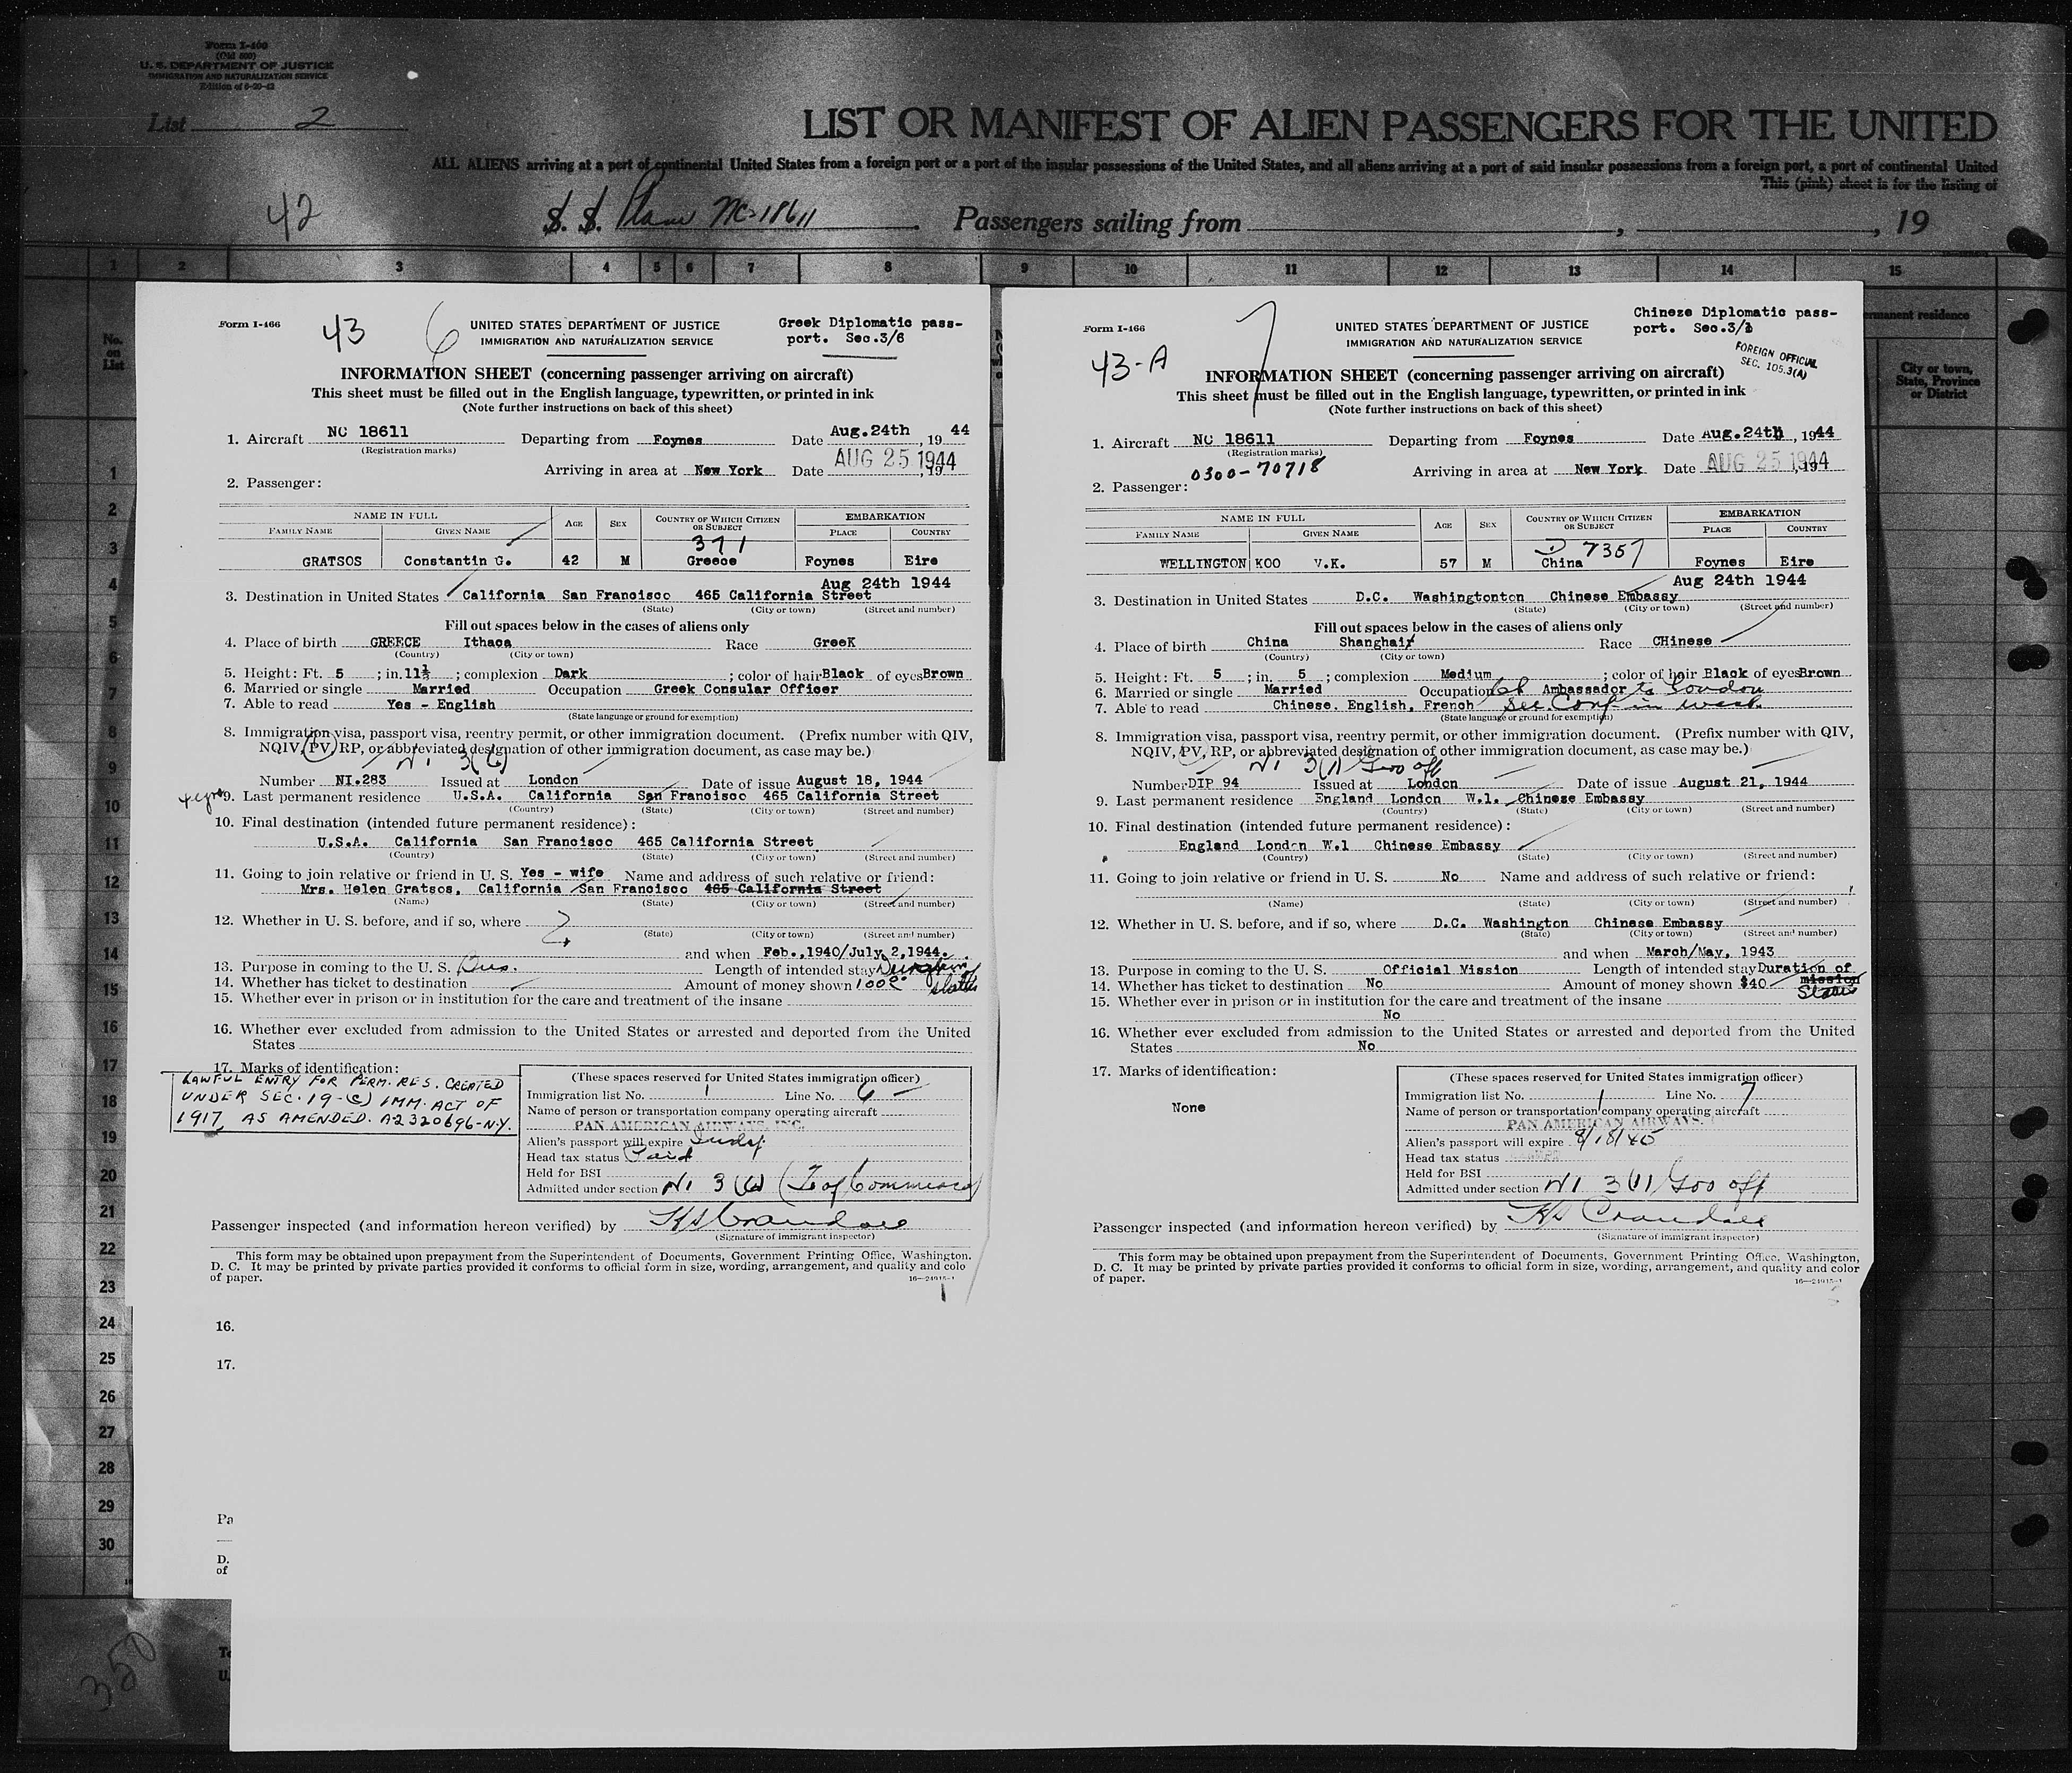 Form I-400
(Old 500)
U. S. DEPARTMENT OF JUSTICE
IMMIGRATION AND NATURALIZATION SERVICE
Edition of 6-20-42
List 2
LIST OR MANIFEST OF ALIEN PASSENGERS FOR THE UNITED
ALL ALIENS arriving at a port of continental United States from a foreign port or a port of the insular possessions of the United States, and all aliens arriving at a port of said insular possessions from a foreign port, a port of continental United
This (pink) sheet is for the listing of
42 S. S. Plane NC-18611 Passengers sailing from , , 19
1 2 3 4 5 6 7 8 9 10 11 12 13 14 15
No. on List
permanent residence
City or town, State, Province or District
Form I-466 43 6
UNITED STATES DEPARTMENT OF JUSTICE
IMMIGRATION AND NATURALIZATION SERVICE
Greek Diplomatic pass-
port. Sec.3/6
INFORMATION SHEET (concerning passenger arriving on aircraft)
This sheet must be filled out in the English language, typewritten, or printed in ink
(Note further instructions on back of this sheet)
1. Aircraft NC 18611 Departing from Foynes Date Aug.24th , 19 44
(Registration marks)
Arriving in area at New York Date AUG 25 1944 , 19
2. Passenger:
NAME IN FULL AGE SEX COUNTRY OF WHICH CITIZEN OR SUBJECT EMBARKATION
FAMILY NAME GIVEN NAME PLACE COUNTRY
371
GRATSOS Constantin G. 42 M Greece Foynes Eire
Aug 24th 1944
3. Destination in United States California San Francisco 465 California Street
(State) (City or town) (Street and number)
Fill out spaces below in the cases of aliens only
4. Place of birth GREECE Ithaca Race GreeK
(Country) (City or town)
5. Height: Ft. 5 ; in. 11½ ; complexion Dark ; color of hair Black of eyes Brown
6. Married or single Married Occupation Greek Consular Officer
7. Able to read Yes - English
(State language or ground for exemption)
8. Immigration visa, passport visa, reentry permit, or other immigration document. (Prefix number with QIV,
NQIV, PV, RP, or abbreviated designation of other immigration document, as case may be.)
NI 3(6)
Number NI.283 Issued at London Date of issue August 18, 1944
9. Last permanent residence U.S.A. California San Francisco 465 California Street
(Country) (State) (City or town) (Street and number)
10. Final destination (intended future permanent residence):
U.S.A. California San Francisco 465 California Street
(Country) (State) (City or town) (Street and number)
11. Going to join relative or friend in U. S. Yes - wife Name and address of such relative or friend:
Mrs. Helen Gratsos, California San Francisco 465 California Street
(Name) (State) (City or town) (Street and number)
12. Whether in U. S. before, and if so, where
(State) (City or town) (Street and number)
and when Feb.,1940/July 2,1944.
13. Purpose in coming to the U. S. Bus. Length of intended stay Duration of
status
14. Whether has ticket to destination Amount of money shown 100
15. Whether ever in prison or in institution for the care and treatment of the insane
16. Whether ever excluded from admission to the United States or arrested and deported from the United
States
17. Marks of identification:
LAWFUL ENTRY FOR PERM. RES. CREATED
UNDER SEC. 19-(c) IMM. ACT OF
1917, AS AMENDED. A-2320696-N.Y.
(These spaces reserved for United States immigration officer)
Immigration list No. 1 Line No. 6
Name of person or transportation company operating aircraft
PAN AMERICAN AIRWAYS, INC.
Alien's passport will expire Indef.
Head tax status Paid
Held for BSI
Admitted under section NI 3(6) (T of Commerce)
Passenger inspected (and information hereon verified) by
(Signature of immigrant inspector)
This form may be obtained upon prepayment from the Superintendent of Documents, Government Printing Office, Washington,
D. C. It may be printed by private parties provided it conforms to official form in size, wording, arrangement, and quality and colo
of paper. 16—24915-1
Form I-466 43-A 7
UNITED STATES DEPARTMENT OF JUSTICE
IMMIGRATION AND NATURALIZATION SERVICE
Chinese Diplomatic pass-
port. Sec.3/1
FOREIGN OFFICIAL
SEC. 105.3(A)
INFORMATION SHEET (concerning passenger arriving on aircraft)
This sheet must be filled out in the English language, typewritten, or printed in ink
(Note further instructions on back of this sheet)
1. Aircraft NC 18611 Departing from Foynes Date Aug.24th , 1944
(Registration marks)
0300-70718
Arriving in area at New York Date AUG 25 1944 , 19
2. Passenger:
NAME IN FULL AGE SEX COUNTRY OF WHICH CITIZEN OR SUBJECT EMBARKATION
FAMILY NAME GIVEN NAME PLACE COUNTRY
D 7357
WELLINGTON KOO V.K. 57 M China Foynes Eire
Aug 24th 1944
3. Destination in United States D.C. Washingtonton Chinese Embassy
(State) (City or town) (Street and number)
Fill out spaces below in the cases of aliens only
4. Place of birth China Shanghai Race CHinese
(Country) (City or town)
5. Height: Ft. 5 ; in. 5 ; complexion Medium ; color of hair Black of eyes Brown
6. Married or single Married Occupation Ambassador to London
7. Able to read Chinese. English, French See Conf in wash.
(State language or ground for exemption)
8. Immigration visa, passport visa, reentry permit, or other immigration document. (Prefix number with QIV,
NQIV, PV, RP, or abbreviated designation of other immigration document, as case may be.)
NI 3(1) Gov off
Number DIP 94 Issued at London Date of issue August 21, 1944
9. Last permanent residence England London W.1. Chinese Embassy
(Country) (State) (City or town) (Street and number)
10. Final destination (intended future permanent residence):
England London W.1 Chinese Embassy
(Country) (State) (City or town) (Street and number)
11. Going to join relative or friend in U. S. No Name and address of such relative or friend:
(Name) (State) (City or town) (Street and number)
12. Whether in U. S. before, and if so, where D.C. Washington Chinese Embassy
(State) (City or town) (Street and number)
and when March/May, 1943
13. Purpose in coming to the U. S. Official Mission Length of intended stay Duration of
mission
Status
14. Whether has ticket to destination No Amount of money shown $40
15. Whether ever in prison or in institution for the care and treatment of the insane
No
16. Whether ever excluded from admission to the United States or arrested and deported from the United
States No
17. Marks of identification:
None
(These spaces reserved for United States immigration officer)
Immigration list No. 1 Line No. 7
Name of person or transportation company operating aircraft
PAN AMERICAN AIRWAYS.
Alien's passport will expire 8/18/45
Head tax status
Held for BSI
Admitted under section NI 3(1) Gov off
Passenger inspected (and information hereon verified) by
(Signature of immigrant inspector)
This form may be obtained upon prepayment from the Superintendent of Documents, Government Printing Office, Washington,
D. C. It may be printed by private parties provided it conforms to official form in size, wording, arrangement, and quality and color
of paper. 16—24915-1
1
2
3
4
5
6
7
8
9
10
11
12
13
14
15
16
17
18
19
20
21
22
23
24
25
26
27
28
29
30
16.
17.
Pa
D.
of
To
U.
350